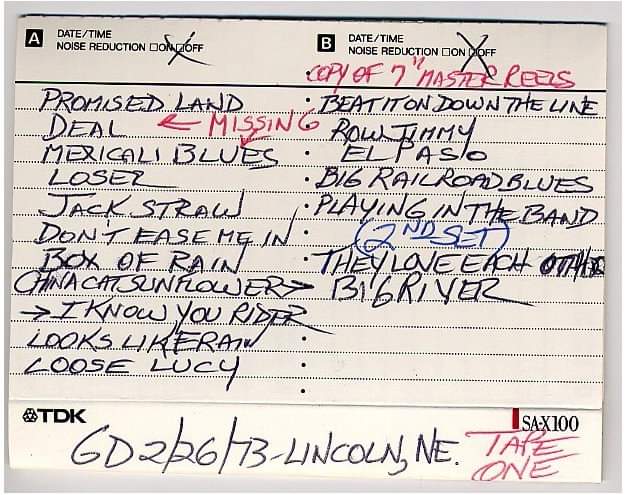 A DATE/TIME
NOISE REDUCTION ON OFF
PROMISED LAND
DEAL ← MISSING
MEXICALI BLUES
LOSER
JACK STRAW
DON'T EASE ME IN
BOX OF RAIN
CHINACATSUNFLOWER→
→ I KNOW YOU RIDER
LOOKS LIKE RAIN
LOOSE LUCY
B DATE/TIME
NOISE REDUCTION ON OFF
COPY OF 7" MASTER REELS
BEAT IT ON DOWN THE LINE
ROW JIMMY
EL PASO
BIG RAILROAD BLUES
PLAYING IN THE BAND
2ND SET
THEY LOVE EACH OTHER
BIG RIVER
TDK
SA-X100
GD 2/26/73-LINCOLN, NE.
TAPE
ONE